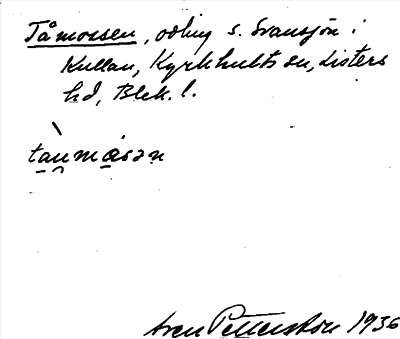 Tåmossen, odling s. Svansjön i
Kullan, Kyrkhults sn, Listers
hd, Blek. l.
tau̯måsən
Sven Petterson 1936